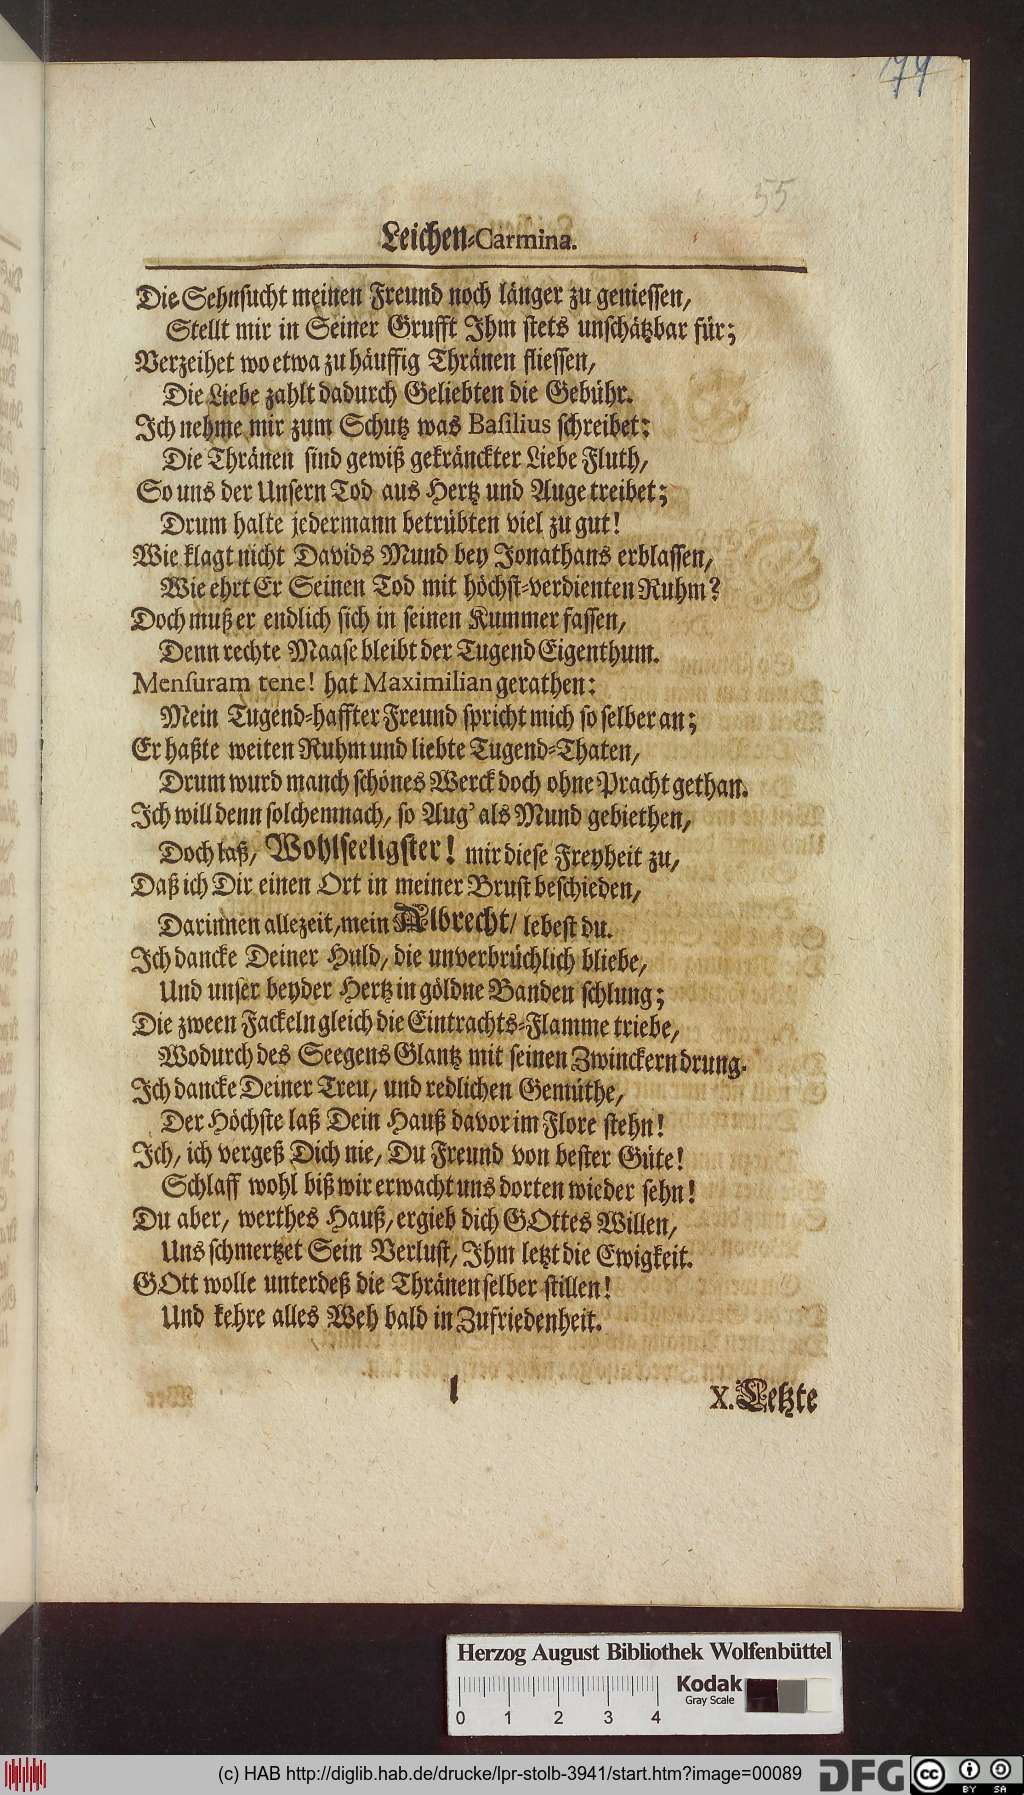 77
55
Leichen-Carmina.
Die Sehnsucht meinen Freund noch länger zu geniessen,
Stellt mir in Seiner Grufft Ihm stets unschätzbar für;
Verzeihet wo etwa zu häuffig Thränen fliessen,
Die Liebe zahlt dadurch Geliebten die Gebühr.
Ich nehme mir zum Schutz was Basilius schreibet:
Die Thränen sind gewiß gekränckter Liebe Fluth,
So uns der Unsern Tod aus Hertz und Auge treibet;
Drum halte jedermann betrübten viel zu gut!
Wie klagt nicht Davids Mund bey Jonathans erblassen,
Wie ehrt Er Seinen Tod mit höchst-verdienten Ruhm?
Doch muß er endlich sich in seinen Kummer fassen,
Denn rechte Maase bleibt der Tugend Eigenthum.
Mensuram tene! hat Maximilian gerathen:
Mein Tugend-haffter Freund spricht mich so selber an;
Er haßte weiten Ruhm und liebte Tugend-Thaten,
Drum wurd manch schönes Werck doch ohne Pracht gethan.
Ich will denn solchemnach, so Aug' als Mund gebiethen,
Doch laß, Wohlseeligster! mir diese Freyheit zu,
Daß ich Dir einen Ort in meiner Brust beschieden,
Darinnen allezeit, mein Albrecht/ lebest du.
Ich dancke Deiner Huld, die unverbrüchlich bliebe,
Und unser beyder Hertz in göldne Banden schlung;
Die zween Fackeln gleich die Eintrachts-Flamme triebe,
Wodurch des Seegens Glantz mit seinen Zwinckern drung.
Ich dancke Deiner Treu, und redlichen Gemüthe,
Der Höchste laß Dein Hauß davor im Flore stehn!
Ich, ich vergeß Dich nie, Du Freund von bester Güte!
Schlaff wohl biß wir erwacht uns dorten wieder sehn!
Du aber, werthes Hauß, ergieb dich GOttes Willen,
Uns schmertzet Sein Verlust, Ihm letzt die Ewigkeit.
GOtt wolle unterdeß die Thränen selber stillen!
Und kehre alles Weh bald in Zufriedenheit.
l
X. Letzte
Herzog August Bibliothek Wolfenbüttel
Kodak
Gray Scale
0 1 2 3 4
(c) HAB http://diglib.hab.de/drucke/lpr-stolb-3941/start.htm?image=00089
DFG
cc BY SA